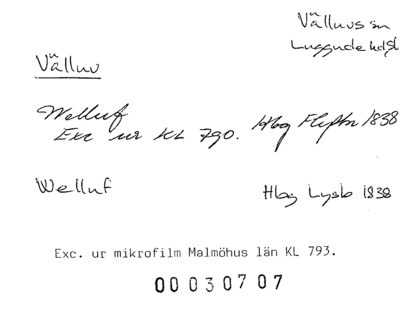 Välluvs sn
Luggude hdsl
Välluv
Welluf Hbg Flyfbr 1838
Exc ur KL 790.
Welluf Hbg Lysb 1838
Exc. ur mikrofilm Malmöhus län KL 793.
00030707